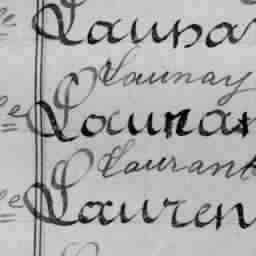 Launa
Launay
Launay
Laurant
Lauren